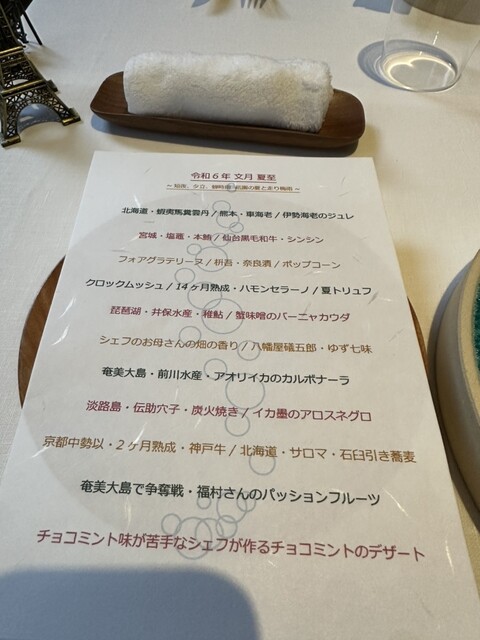 令和6年 文月 夏至
~ 短夜、夕立、蝉時雨 祇園の夏と走り梅雨 ~
北海道・蝦夷馬糞雲丹 / 熊本・車海老 / 伊勢海老のジュレ
宮城・塩竈・本鮪 / 仙台黒毛和牛・シンシン
フォアグラテリーヌ / 枡吾・奈良漬 / ポップコーン
クロックムッシュ / 14ヶ月熟成・ハモンセラーノ / 夏トリュフ
琵琶湖・井保水産・稚鮎 / 蟹味噌のバーニャカウダ
シェフのお母さんの畑の香り / 八幡屋礒五郎・ゆず七味
奄美大島・前川水産・アオリイカのカルボナーラ
淡路島・伝助穴子・炭火焼き / イカ墨のアロスネグロ
京都中勢以・2ヶ月熟成・神戸牛 / 北海道・サロマ・石臼引き蕎麦
奄美大島で争奪戦・福村さんのパッションフルーツ
チョコミント味が苦手なシェフが作るチョコミントのデザート